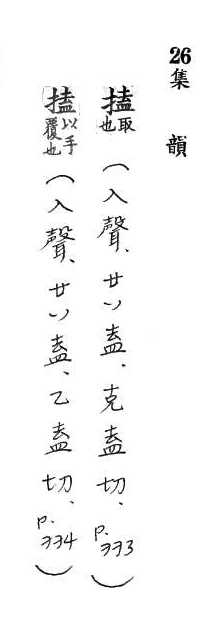 26 集韻
搕取也(入聲、廿八盍、克盍切、p.333)
搕以手覆也(入聲、廿八盍、乙盍切、p.334)